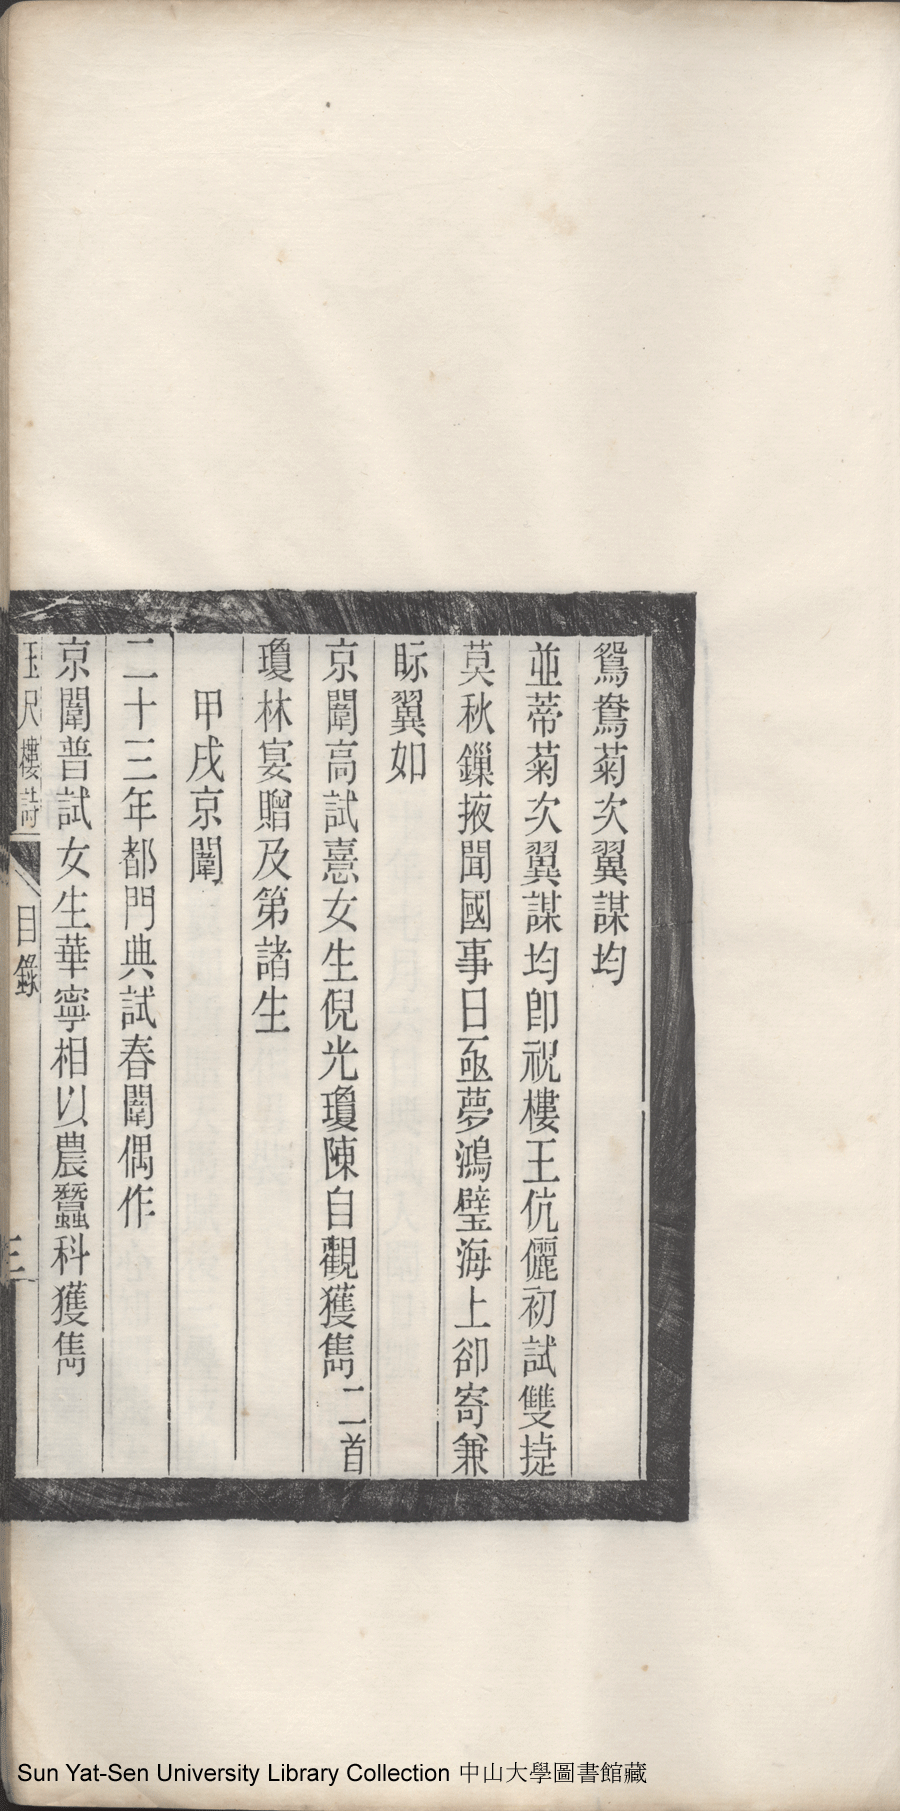 鴛鴦菊次翼謀均
並蒂菊次翼謀均卽祝樓王伉儷初試雙捷
莫秋鏁掖聞國事日亟夢鴻璧海上卻寄兼
眎翼如
京闈高試憙女生倪光瓊陳自觀獲雋二首
瓊林宴贈及第諸生
甲戌京闈
二十三年都門典試春闈偶作
京闈普試女生華寧相以農蠶科獲雋
玉尺樓詩 目錄 三
Sun Yat-Sen University Library Collection 中山大學圖書館藏